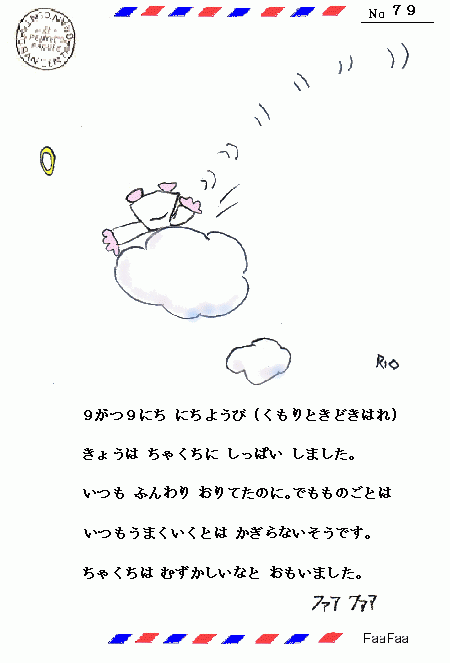 No 79
RIO
9がつ9にち にちようび (くもりときどきはれ)
きょうは ちゃくちに しっぱい しました。
いつも ふんわり おりてたのに。でもものごとは
いつもうまくいくとは かぎらないそうです。
ちゃくちは むずかしいなと おもいました。
ファファ ファファ
FaaFaa